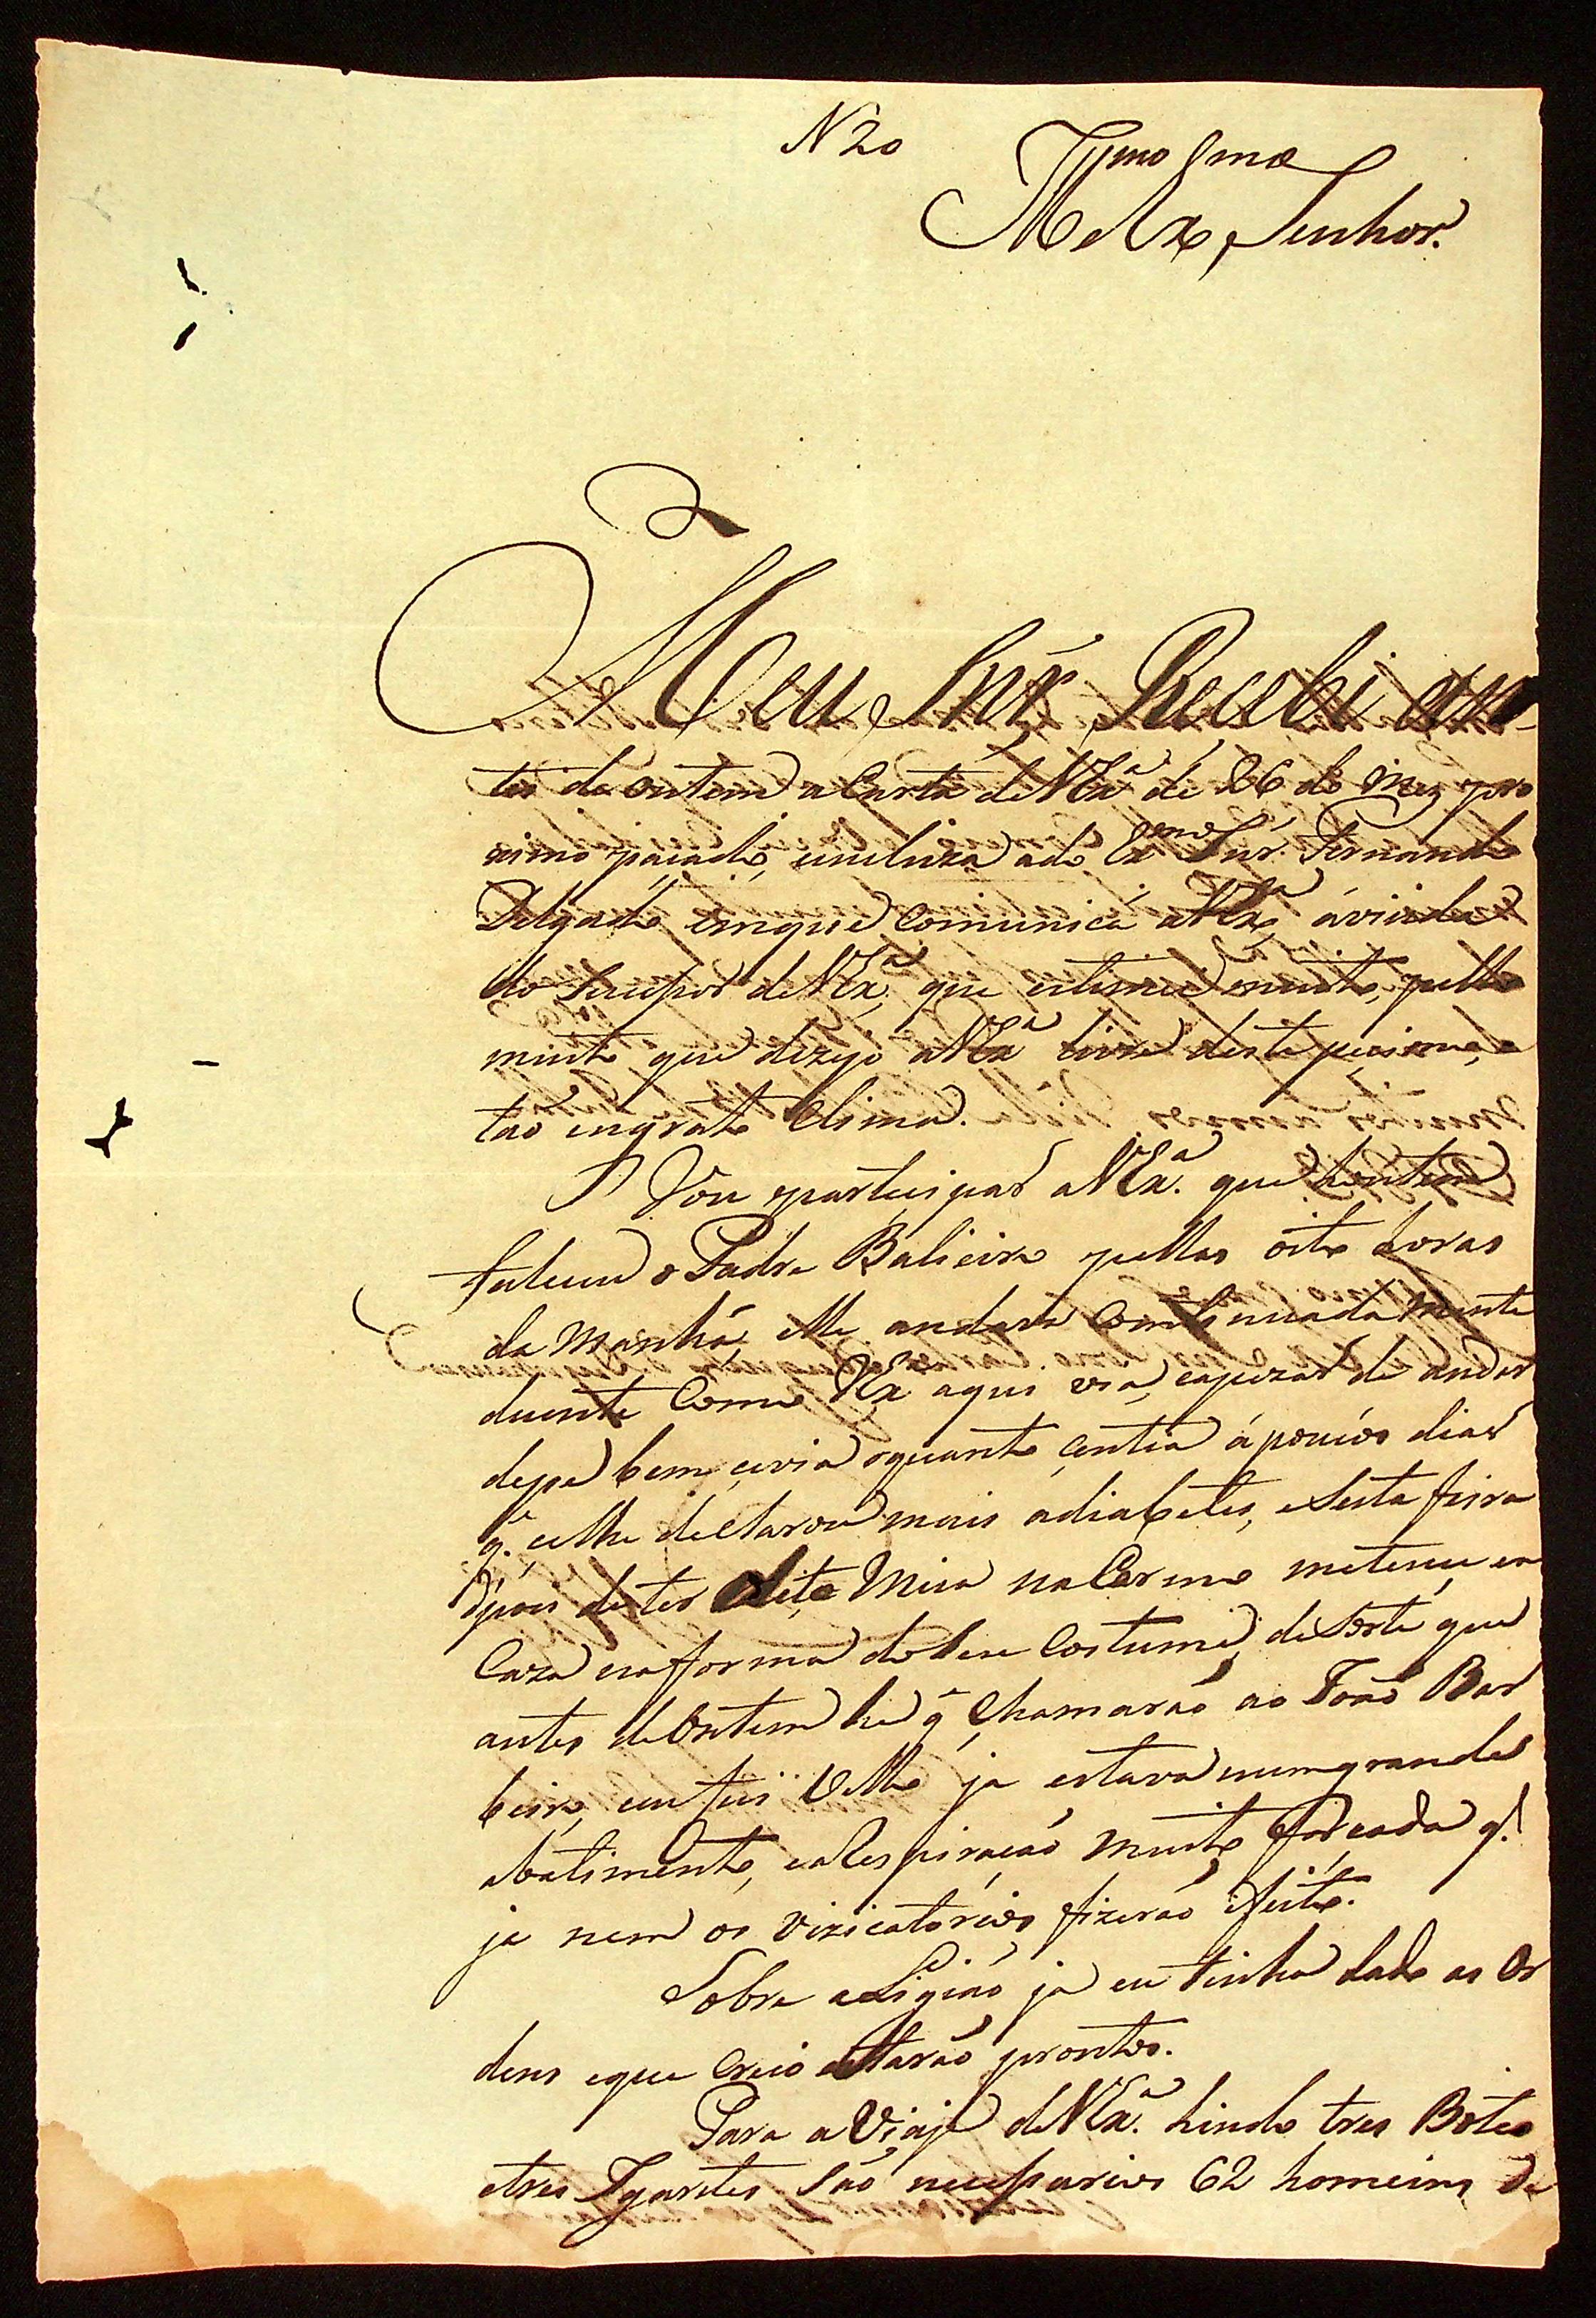 N 20
Illmo Exmo
Senhor.
Meu Snr̃ Recebi an-
tes de ontem a Carta de V Exª de 26 do Mez pro
ximo paçado, encluza a do Exmo Snr. Fernando
Delgado emque comunica a V Exª ávinda
do Sucepor de V Exª que estimei muito, pello
muito que dezejo a V Exª livre deste pecimo, e
tao engrato Clima.
Vou participar a V Exª. que hontem
faleceu o Padre Balieiro pellas oito horas
da Manhã, elle andava Continuada mente
duente Como V Exª aqui via, eapezar de andar
depe bem, cevia oquanto centia á poucos dias
q. celhe declarou mais adiabetes, e Sesta feira
dipois deter dito Miça no Carmo meteuce en
Caza na forma doseu Costume, de Sorte que
antes de Ontem he q̃ Chamarão ao João Bar
beiro, eu fui Velo ja estava numgrande
abatimento, ea Respiração muito forcada q.
ja nem os vizicatorios fizerão efeito.
Sobre a Ligião ja eu tinha dado as Or
dens eque Creio estarão prontos.
Para a Viaje de V Exª. hindo tres Botes
etres Igarites São neceparios 62 homeins de